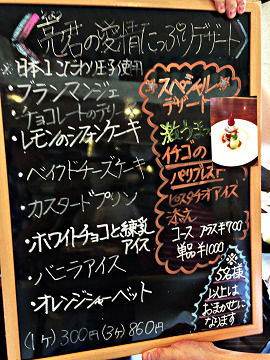 亮君の愛情たっぷりデザート
日本一こだわり玉子使用
・ブランマンジェ
・チョコレートのテリーヌ
・レモンのシフォンケーキ
・ベイクドチーズケーキ
・カスタードプリン
・ホワイトチョコと練乳
アイス
・バニラアイス
・オレンジシャーベット
(1ヶ)300円(3ヶ)860円
スペシャル
デザート
イチゴの
パリブレスト
ピスタチオアイス
添え
コース プラス¥700
単品 ¥1000
※
5名様
以上は
おまかせに
なります